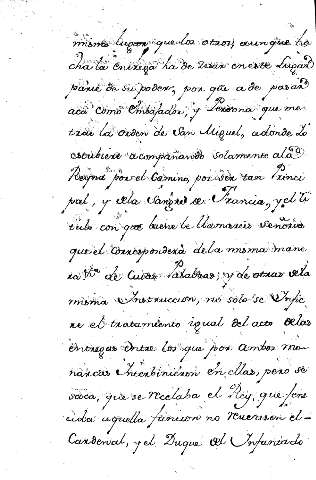 mismo lugar que los otros; aunque he
cha la entrega ha de estar en este Lugar
parte de su poder, por que a de pasar
acá como Embajador, y Persona que me
trae la orden de San Miguel, adonde lo
estubiere acompañando solamente ala
Reyna por el Camino, por ser tan Princi
pal, y dela Sangre de Francia, y el ti
tulo con que buelve le llamareis Señoria
que el corresponderá dela misma mane
ra de cuias Palabras; y de otras dela
misma Instruccion, no solo se Infie
re el tratamiento igual del acto delas
entregas entre los que por ambos mo
narcas Interbinieron en ellas, pero se
saca, que se recelaba el Rey, que fene
cida aquella funcion no tuviessen el
Cardenal, y el Duque del Infantado